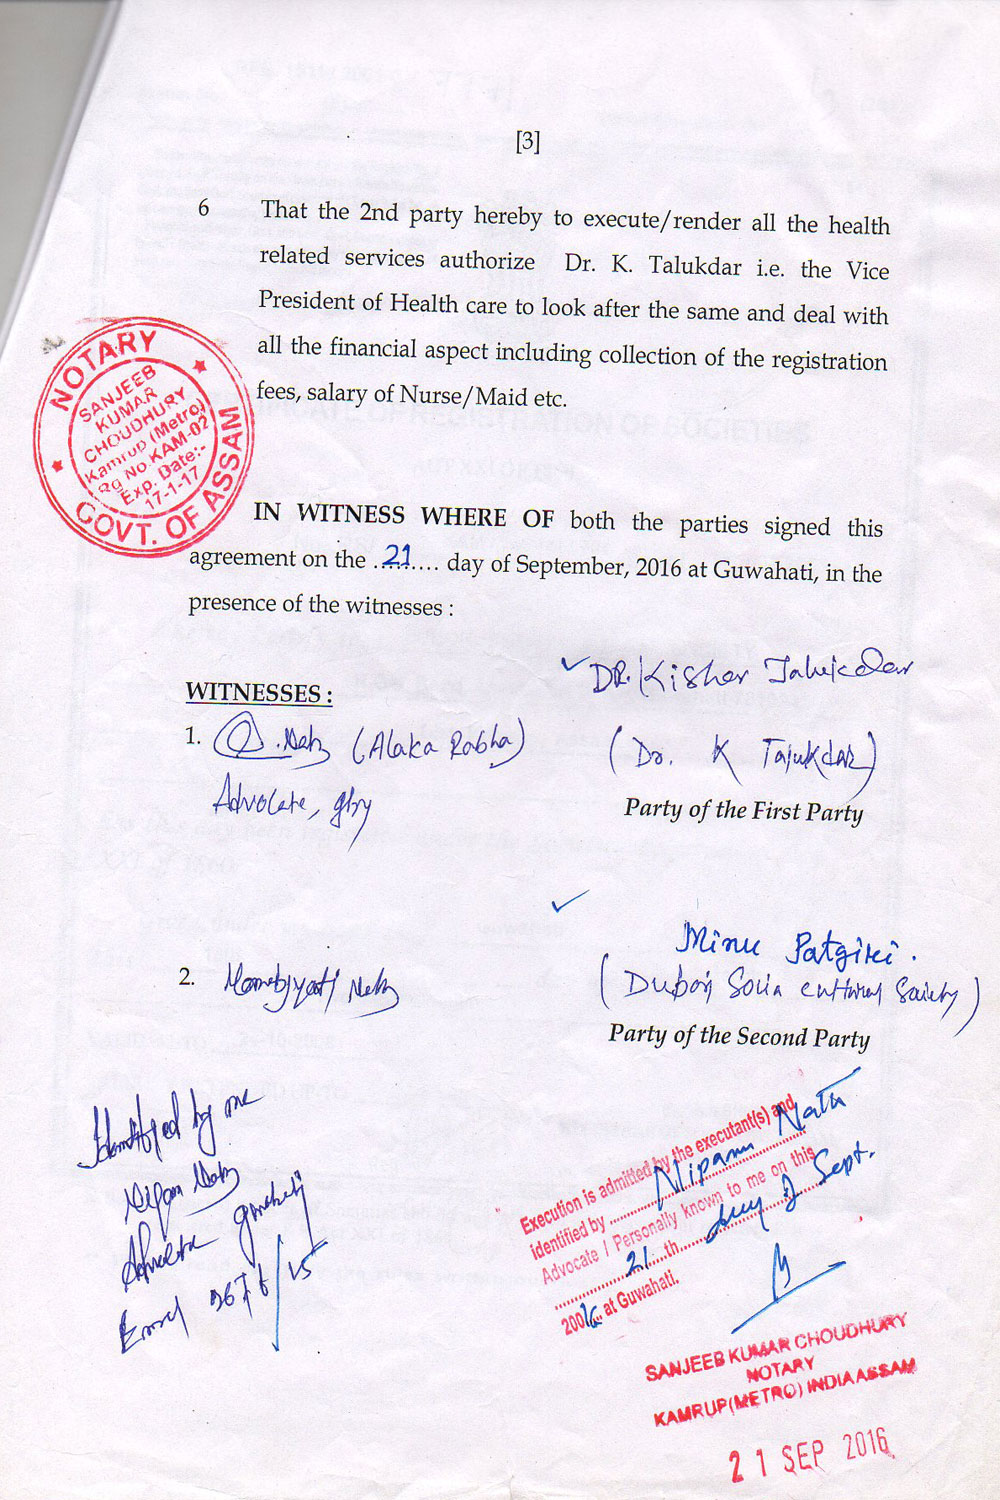 [3]
6 That the 2nd party hereby to execute/render all the health
related services authorize Dr. K. Talukdar i.e. the Vice
President of Health care to look after the same and deal with
all the financial aspect including collection of the registration
fees, salary of Nurse/Maid etc.
NOTARY
SANJEEB
KUMAR
CHOUDHURY
Kamrup (Metro)
Rg No. KAM-02
Exp. Date:-
17-1-17
GOVT. OF ASSAM
IN WITNESS WHERE OF both the parties signed this
agreement on the ..21...... day of September, 2016 at Guwahati, in the
presence of the witnesses :
DR. Kishor Talukdar
WITNESSES :
1. (Alaka Rabha)
(Dr. K Talukdar)
Advocate, ghy
Party of the First Party
Minu Patgiri.
2.
(Cultural Society)
Party of the Second Party
Identified by me
Advocate Guwahati
Execution is admitted by the executant(s) and
identified by ........ Nath
Advocate / Personally known to me on this
......21...th.... day of Sept.
20016.. at Guwahati.
SANJEEB KUMAR CHOUDHURY
NOTARY
KAMRUP(METRO) INDIA ASSAM
21 SEP 2016